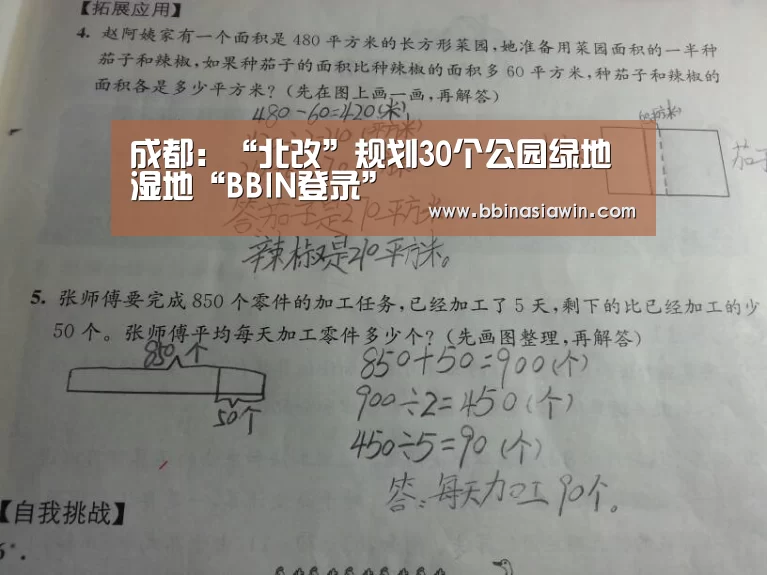 【拓展应用】
4. 赵阿姨家有一个面积是 480 平方米的长方形菜园,她准备用菜园面积的一半种
茄子和辣椒,如果种茄子的面积比种辣椒的面积多 60 平方米,种茄子和辣椒的
面积各是多少平方米?(先在图上画一画,再解答)
480-60=420(米)
成都:“北改”规划30个公园绿地
湿地“BBIN登录”
www.bbinasiawin.com
茄子
答茄子是270平方米
辣椒是210平方米。
5. 张师傅要完成 850 个零件的加工任务,已经加工了 5 天,剩下的比已经加工的少
50 个。张师傅平均每天加工零件多少个?(先画图整理,再解答)
850个
50个
850+50=900(个)
900÷2=450(个)
450÷5=90(个)
答:每天加工90个。
【自我挑战】